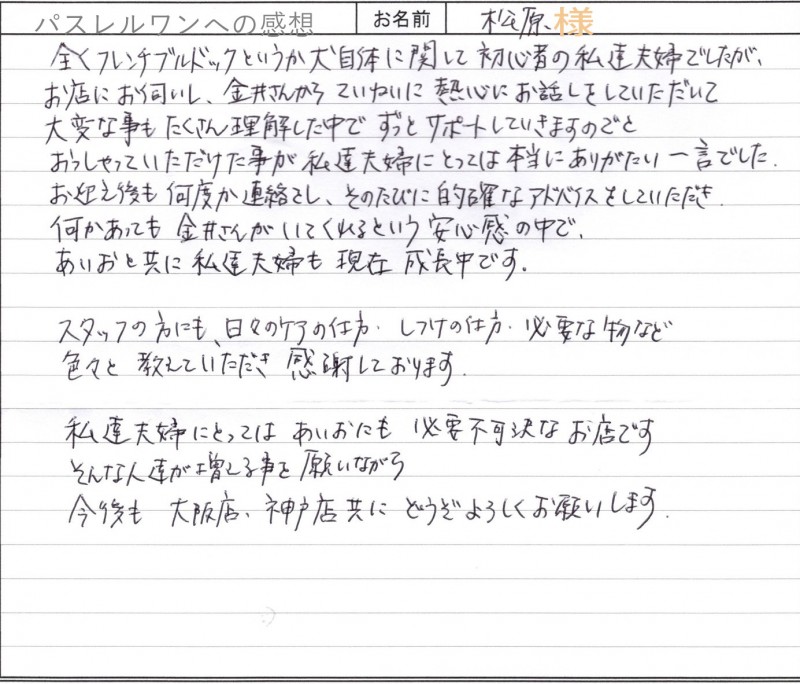 パスレルワンへの感想 お名前 松原 様
全くフレンチブルドックというか犬自体に関して初心者の私達夫婦でしたが、
お店にお伺いし、金井さんから ていねいに 熱心に お話しをしていただいて
大変な事も たくさん理解した中で ずっと サポートしていきますのでと
おっしゃっていただけた事が 私達夫婦にとっては本当にありがたい 一言でした.
お迎え後も 何度か連絡をし、そのたびに的確なアドバイスをしていただき.
何かあっても 金井さんがいてくれるという 安心感の中で、
あいおと共に 私達夫婦も 現在 成長中です.
スタッフの方にも、日々のケアの仕方・しつけの仕方・必要な物など
色々と 教えていただき 感謝しております.
私達夫婦にとっては あいおにも 必要不可決な お店です
そんな人達が増える事を願いながら
今後も 大阪店、神戸店共に どうぞよろしくお願いします.